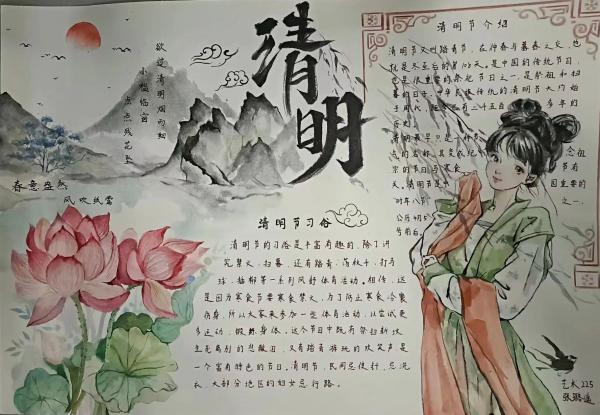 清明
欲迢清明烟雨细
小槛临窗
点点残花坠
春意盎然
风吹纸鸢
清明节介绍
清明节又叫踏青节，在仲春与暮春之交，也
就是冬至后的第108天。是中国的传统节日，
也是很重要的祭祀节日之一，是祭祖和扫
墓的日子。中华民族传统的清明节大约始
于周代，距今已有二千五百 多年的
历史。
清明最早只是一种节
念祖
节有
国重要的
之一
清明节习俗
清明节的习俗是丰富有趣的，除了讲
究禁火、扫墓，还有踏青、荡秋千、打马
球、插柳等一系列风舒体育活动。相传，这
是因为寒食节要寒食禁火，为了防止寒食冷餐
伤身，所以大家来参加一些体育活动，以尝试更
多运动，锻鲜身体。这个节日中既有祭扫新坟
生死离别的悲酸泪，又有踏青游玩的欢笑声是
一个富有特色的节日。清明节，民间忌使针，忌洗
衣，大部分地区的妇女忌行路。
艺术225